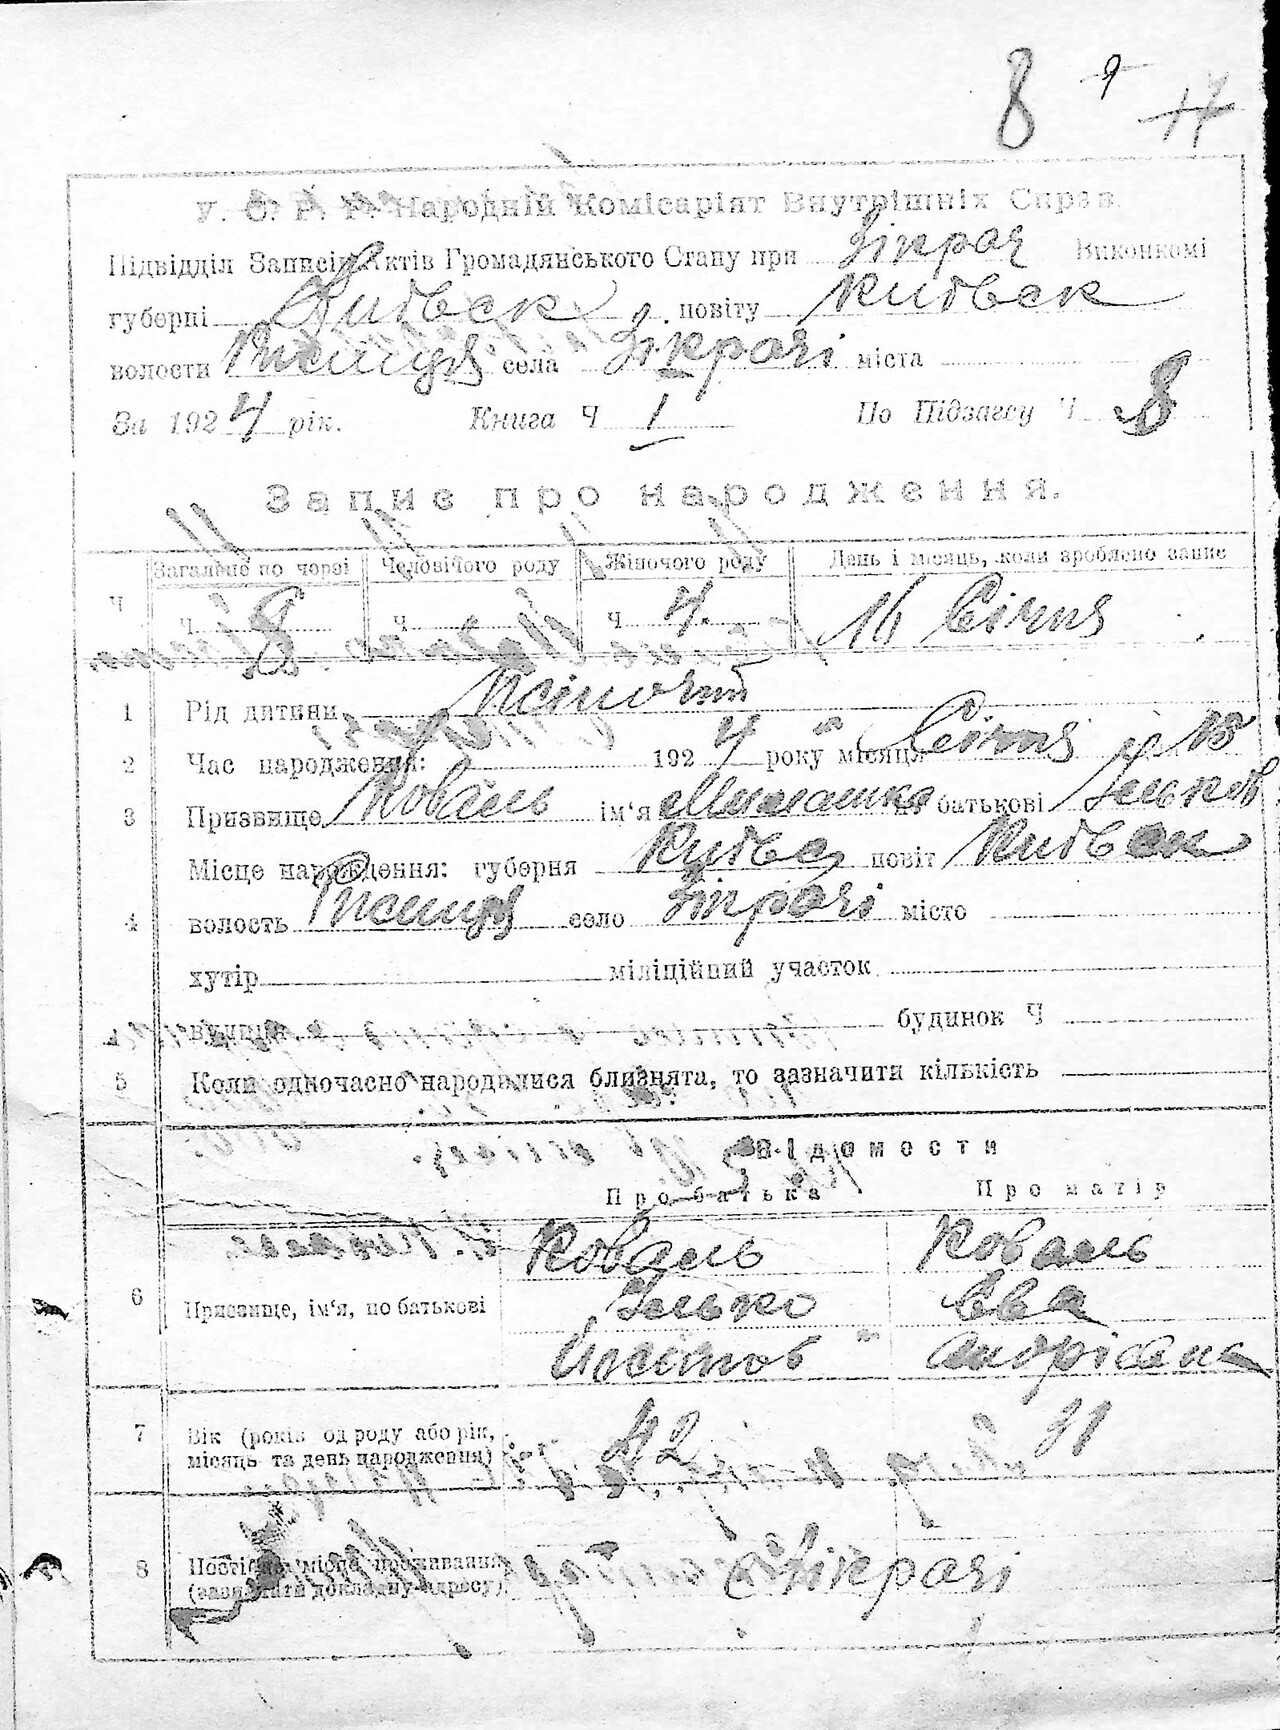 8 9 14
У. С. Р. Р. Народній Комісаріят Внутрішніх Справ.
Підвідділ Записів Актів Громадянського Стану при Зікрач Виконкомі
губерні Київск повіту Київск
волости Ржищів села Зікрачі міста
За 1924 рік. Книга Ч 1 По Підзагсу Ч 8
Запис про народження.
Загально по черзі Чоловічого роду Жіночого роду День і місяць, коли зроблено запис
Ч ч 8 ч ч 4. 16 Січня
1 Рід дитини Жіночий
2 Час народження: 1924 року місяця Січня 15
3 Призвище Коваль ім'я по батькові Ільков
Місце народження: губерня повіт Київск
4 волость село Зікрачі місто
хутір міліційний участок
вулиця будинок Ч
5 Коли одночасно народилися близнята, то зазначити кількість
Відомости
Про батька Про матір
Коваль Коваль
6 Призвище, ім'я, по батькові Ілько Єва
Андріевна
7 Вік (років од роду або рік, 42 31
місяць та день народження)
8 Постійне місце проживання Зікрачі
(зазначити докладну адресу)